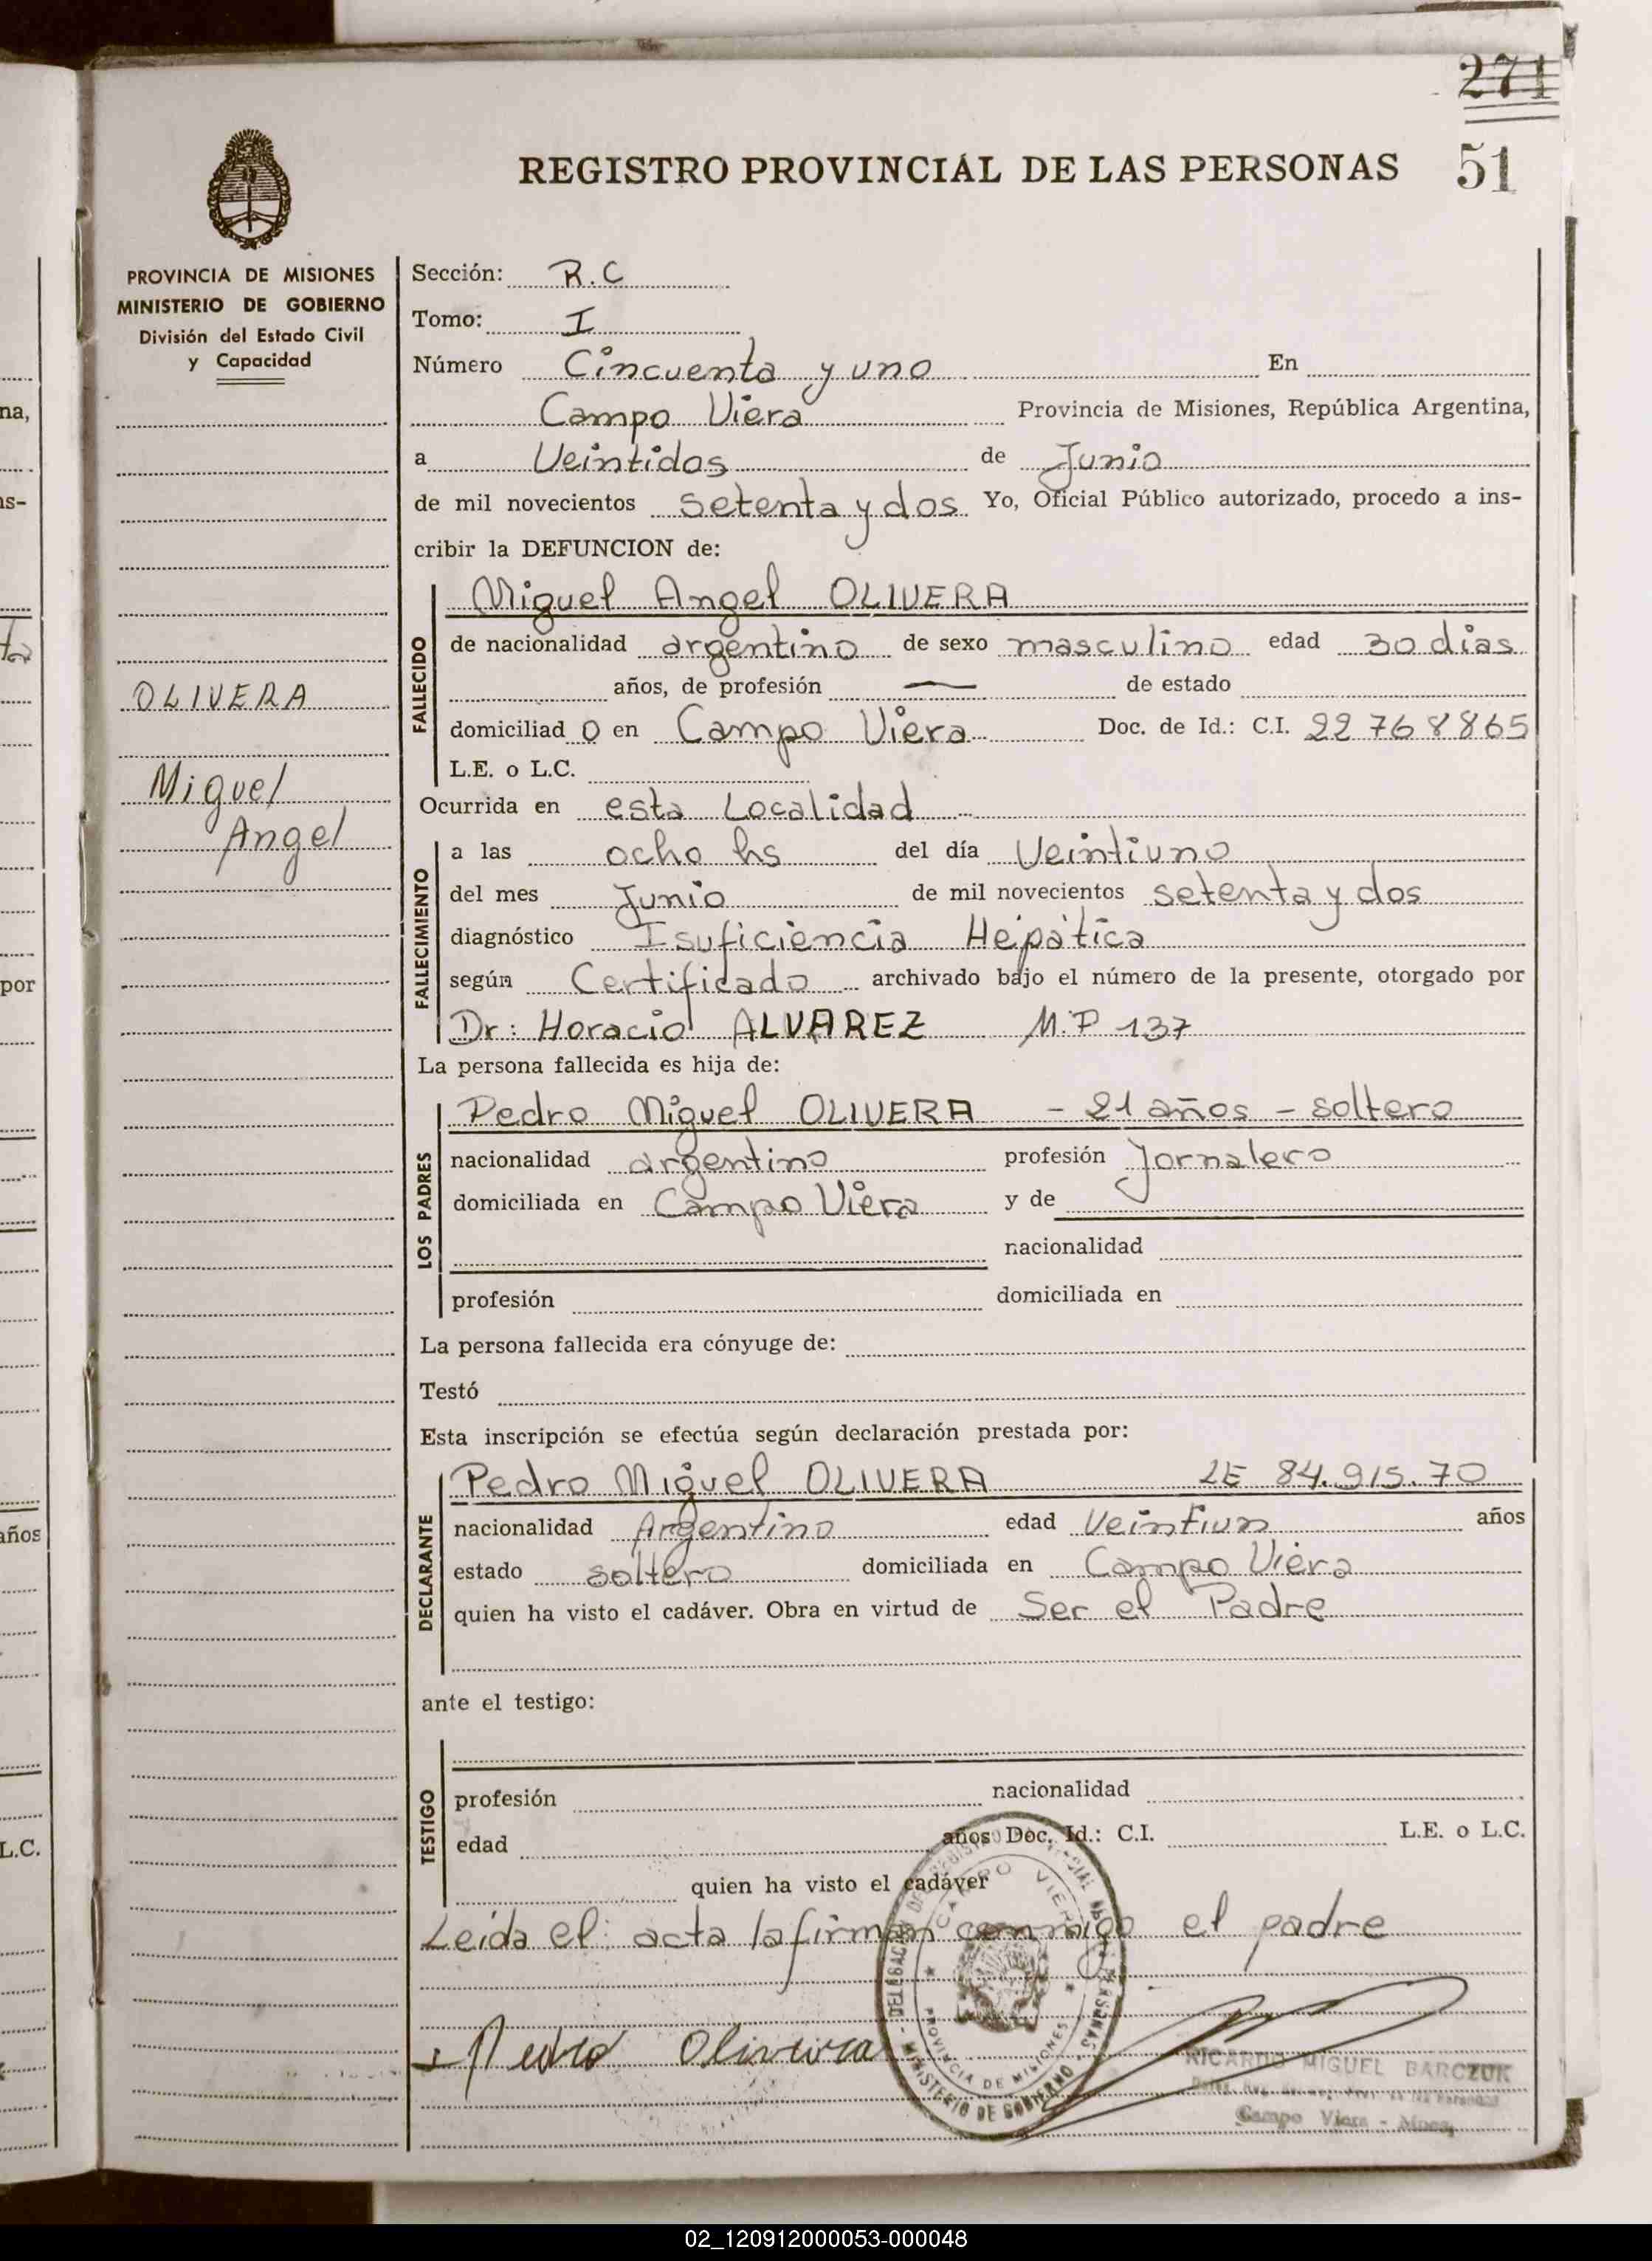 271
REGISTRO PROVINCIAL DE LAS PERSONAS 51
PROVINCIA DE MISIONES
MINISTERIO DE GOBIERNO
División del Estado Civil
y Capacidad
OLIVERA
Miguel
Angel
Sección: R.C
Tomo: I
Número Cincuenta y uno En
Campo Viera Provincia de Misiones, República Argentina,
a Veintidos de Junio
de mil novecientos setenta y dos Yo, Oficial Público autorizado, procedo a ins-
cribir la DEFUNCION de:
FALLECIDO
Miguel Angel OLIVERA
de nacionalidad argentino de sexo masculino edad 30 dias
años, de profesión — de estado
domiciliad o en Campo Viera Doc. de Id.: C.I. 22768865
L.E. o L.C.
Ocurrida en esta Localidad
FALLECIMIENTO
a las ocho hs del día Veintiuno
del mes Junio de mil novecientos setenta y dos
diagnóstico Isuficiencia Hepática
según Certificado archivado bajo el número de la presente, otorgado por
Dr: Horacio ALVAREZ M.P 137
La persona fallecida es hija de:
LOS PADRES
Pedro Miguel OLIVERA - 21 años - soltero
nacionalidad argentino profesión Jornalero
domiciliada en Campo Viera y de
nacionalidad
profesión domiciliada en
La persona fallecida era cónyuge de:
Testó
Esta inscripción se efectúa según declaración prestada por:
DECLARANTE
Pedro Miguel OLIVERA LE 84.915.70
nacionalidad Argentino edad Veintiun años
estado soltero domiciliada en Campo Viera
quien ha visto el cadáver. Obra en virtud de Ser el Padre
ante el testigo:
TESTIGO
profesión nacionalidad
edad años Doc. Id.: C.I. L.E. o L.C.
quien ha visto el cadáver
Leída el: acta la firman conmigo el padre
Pedro Oliveira
CAMPO VIERA
PROVINCIA DE MISIONES
MINISTERIO DE GOBIERNO
RICARDO MIGUEL BARCZUK
Campo Viera - Mnes.
na,
ns-
por
años
L.C.
02_120912000053-000048